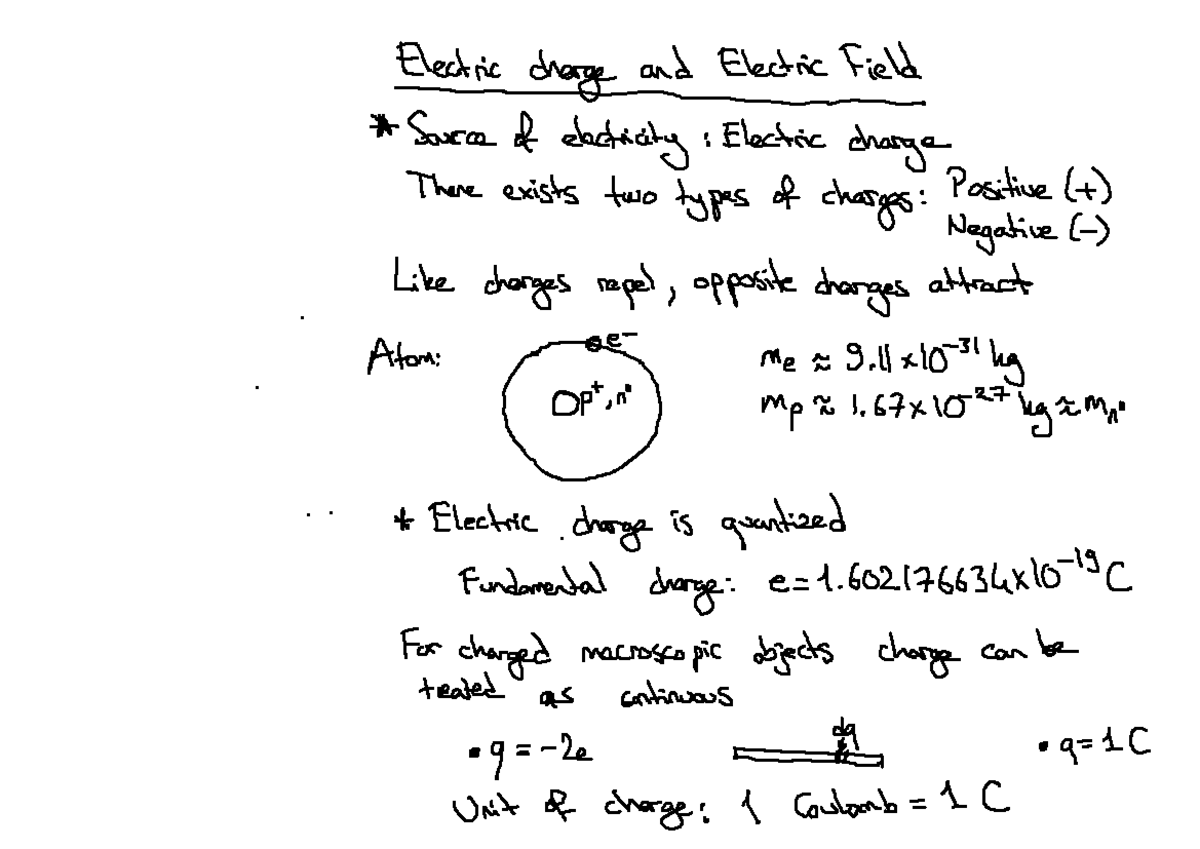 Electric charge and Electric Field
* Source of electricity : Electric charge
There exists two types of charges: Positive (+)
Negative (-)
Like charges repel, opposite charges attract
Atom:
e⁻
p⁺, n⁰
me ≈ 9.11 x10⁻³¹ kg
mp ≈ 1.67x10⁻²⁷ kg ≈ mn⁰
* Electric charge is quantized
Fundamental charge: e=1.602176634x10⁻¹⁹ C
For charged macroscopic objects charge can be
treated as continuous
• q = -2e
dq
• q= 1 C
Unit of charge: 1 Coulomb = 1 C